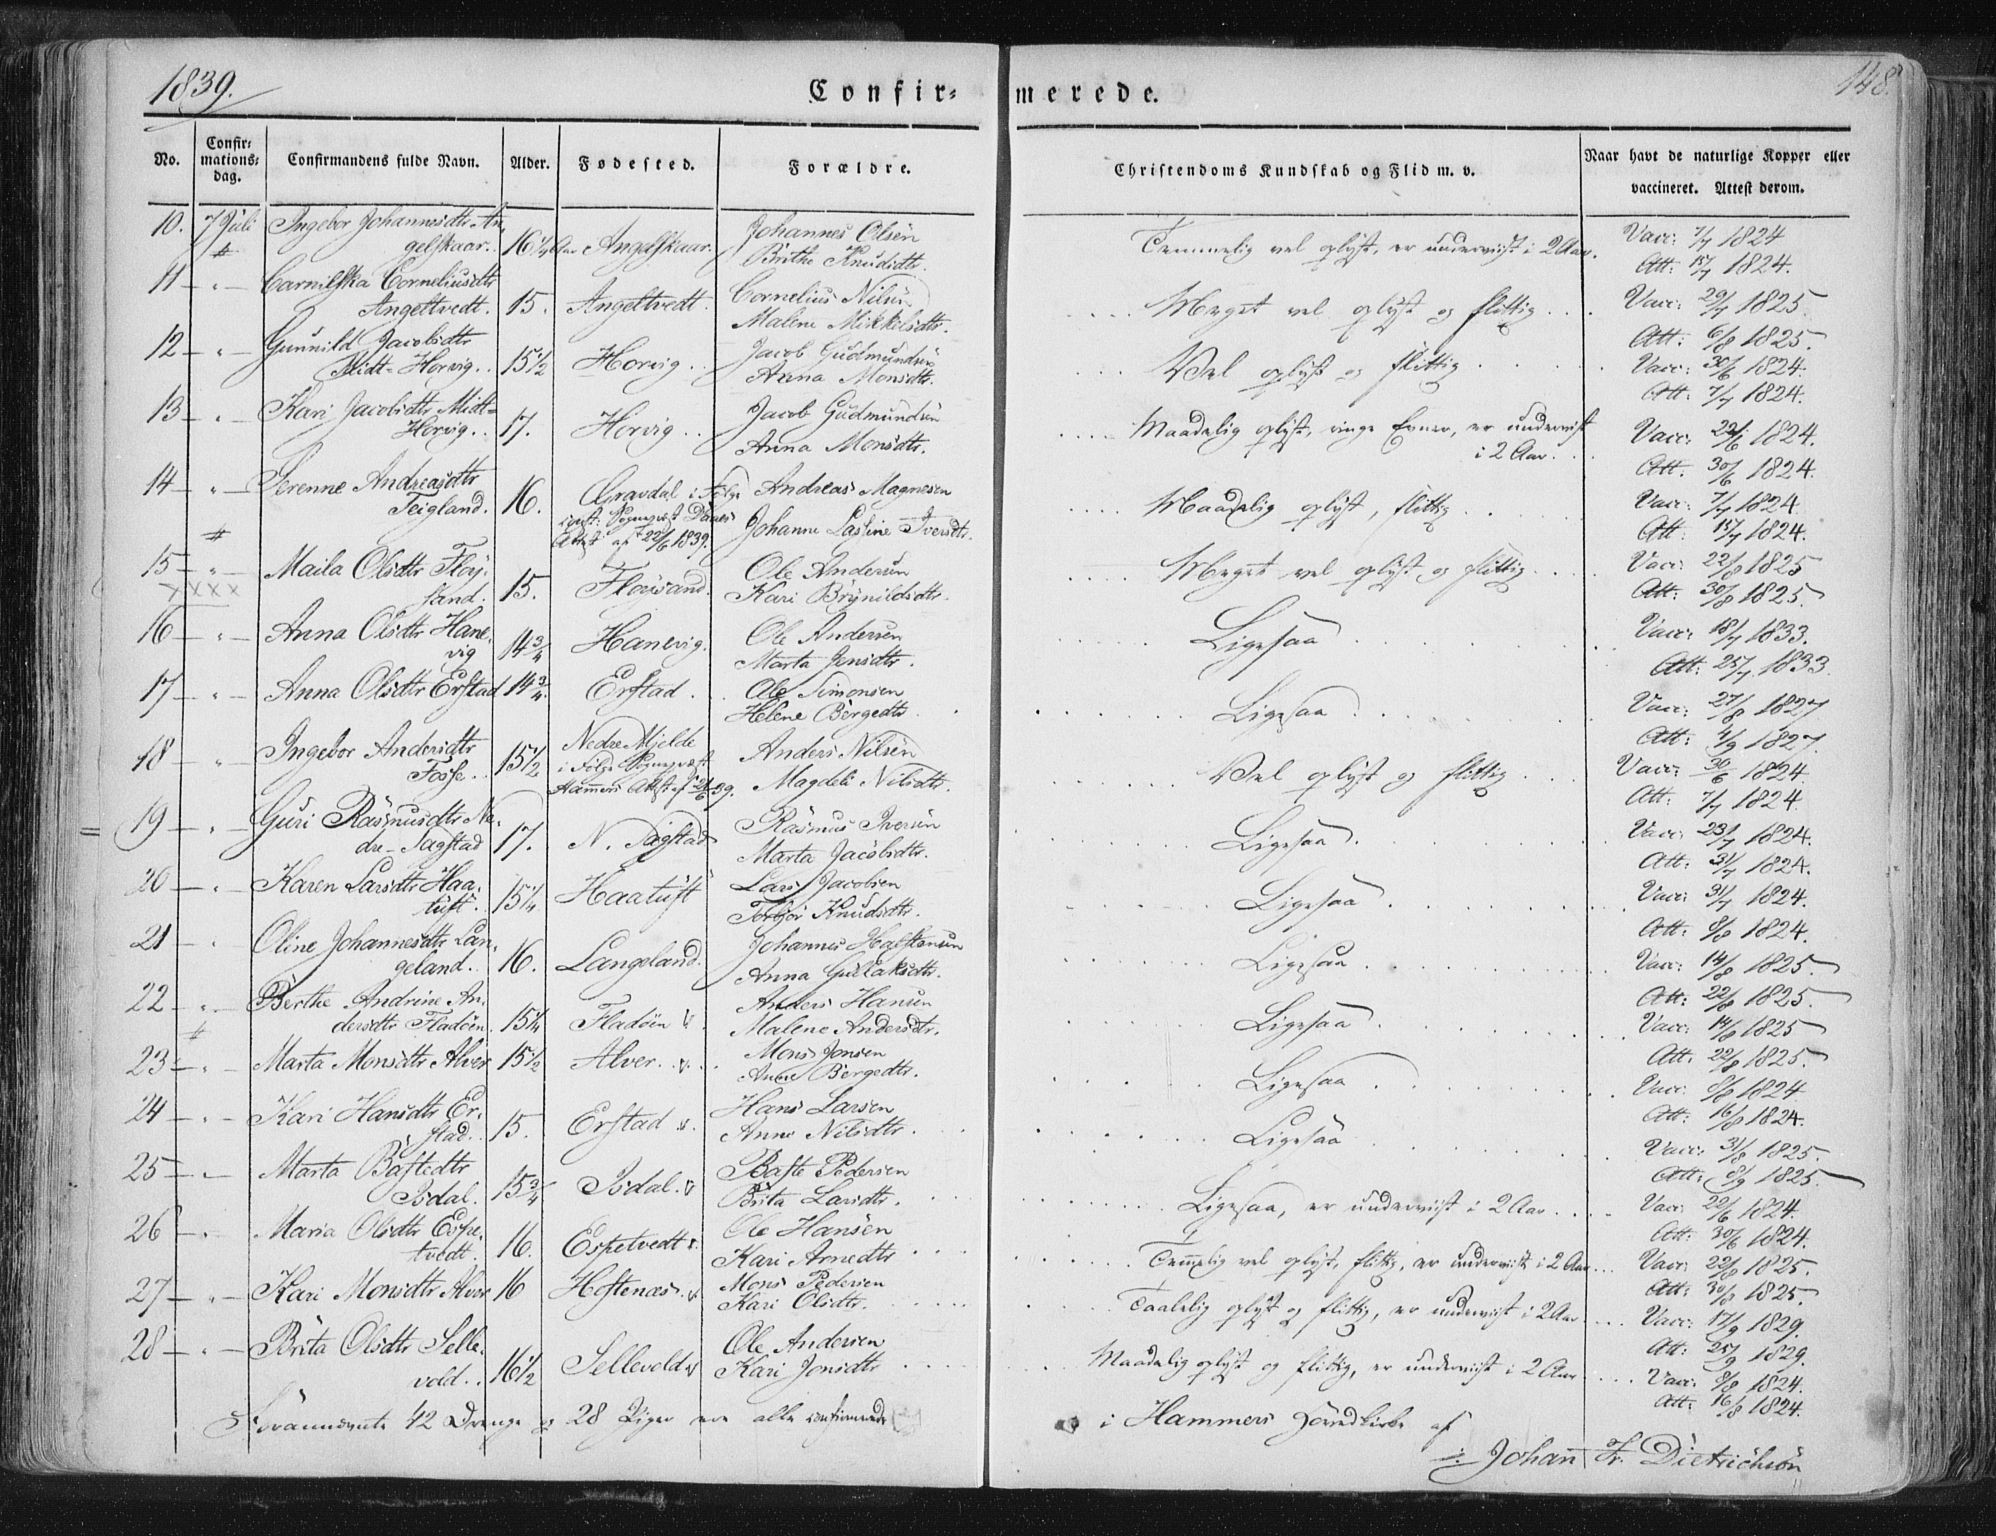 1839.
Confir=
merede.
148.
No.
Confir=
mations=
dag.
Confirmandens fulde Navn.
Alder.
Fødested.
Forældre.
Christendoms Kundskab og Flid m. v.
Naar havt de naturlige Kopper eller
vaccineret. Attest derom.
10. 7 Juli Ingebor Johannesdtr An
gelskaar. 16 1/4 Aar Angelskaar. Johannes Olsen
Brithe Knudsdtr. Temmelig vel oplyst, er underviist i 2 Aar. Vacc: 7/7 1824
Att: 15/7 1824.
11 — " — Carnilska Corneliusdtr
Angeltvedt. 15. Angeltvedt. Cornelius Nilsen
Malene Mikkelsdtr. Meget vel oplyst og flittig Vacc: 29/7 1825.
Att: 6/8 1825.
12 — " — Gunnild Jacobsdtr
Midt-Horvig. 15 1/2 Horvig. Jacob Gudmundsen
Anna Monsdtr. Vel oplyst og flittig Vacc: 30/6 1824.
Att: 7/7 1824.
13 — " — Kari Jacobsdtr Midt=
Horvig. 17. Horvig. Jacob Gudmundsen
Anna Monsdtr. Maadelig oplyst, ringe Evner, er underviist
i 2 Aar. Vacc: 22/6 1824.
Att: 30/6 1824.
14 — " — Serenne Andreasdtr
Teigland. 16. Gravdal i Følge
Attest af 22/6 1839. Andreas Magnesen
Johanne Lassine Iversdtr. Maadelig oplyst, flittig Vacc: 7/7 1824
Att: 15/7 1824.
15 — " — Maila Olsdtr Floj=
sand. 15. Flojsand. Ole Andersen
Kari Brynildsdtr. Meget vel oplyst og flittig Vacc: 22/8 1825
Att: 30/8 1825.
16 — " — Anna Olsdtr Hane=
vig 14 3/4 Hanevig. Ole Andersen
Marta Jensdtr. Ligesaa Vacc: 18/7 1833.
Att: 25/7 1833.
17 — " — Anna Olsdtr Erstad 14 3/4. Erstad. Ole Simonsen
Helene Børgedtr Ligesaa Vacc: 27/8 1827
Att: 4/9 1827.
18 — " — Ingebor Andersdtr
Fosse. 15 1/2 Nedre Mjelde
i Følge
Hammers Attest af 21/6 39. Anders Nilsen
Magdeli Nilsdtr. Vel oplyst og flittig Vacc: 30/6 1824
Att: 7/7 1824.
19 — " — Guri Rasmusdtr Ne=
dre-Tagstad 17. N. Tagstad Rasmus Iversen
Marta Jacobsdtr. Ligesaa Vacc: 23/7 1824.
Att: 31/7 1824.
20 — " — Karen Larsdtr Haa=
tuft. 15 1/4 Haatuft Lars Jacobsen
Torbjør Knudsdtr. Ligesaa Vacc: 31/7 1824.
Att: 8/8 1824.
21 — " Oline Johannesdtr Lan=
geland. 16. Langeland. Johannes Hafstensen
Anna Gullaksdtr. Ligesaa Vacc: 14/8 1825.
Att: 22/8 1825.
22 — " — Berthe Andrine An=
dersdtr Fladøen. 15 1/4 Fladøen Anders Hansen
Malene Andersdtr. Ligesaa Vacc: 14/8 1825
Att: 22/8 1825.
23 — " — Marta Monsdtr Alver 15 1/2 Alver. Mons Jonsen
Anne Børgedtr. Ligesaa Vacc: 8/8 1824
Att: 16/8 1824.
24 — " — Kari Hansdtr Er=
stad. 15. Erstad Hans Larsen
Anne Nilsdtr. Ligesaa Vacc: 31/8 1825.
Att: 8/9 1825.
25 — " — Marta Bastedtr
Isdal. 15 3/4 Isdal. Baste Pedersen
Brita Larsdtr. Ligesaa, er underviist i 2 Aar Vacc: 22/6 1824.
Att: 30/6 1824.
26 — " — Maria Olsdtr Espe=
tvedt. 16. Espetvedt Ole Hansen
Kari Arnedtr Temelig vel oplyst, flittig, er underviist i 2 Aar Vacc: 22/8 1825.
Att: 30/8 1825.
27 — " — Kari Monsdtr Alver 16 Hoftenæs. Mons Pedersen
Kari Olsdtr. Taalelig oplyst og flittig, er underviist i 2 Aar Vacc: 17/9 1829.
Att: 25/9 1829.
28 — " — Brita Olsdtr Selle=
vold. 16 1/2 Sellevold Ole Andersen
Kari Jonsdtr Maadelig oplyst og flittig, er underviist i 2 Aar Vacc: 8/8 1824.
Att: 16/8 1824.
Foranævnte 42 Drenge og 28 Piger ere alle confirmerede i Hammers Hovedkirke af
Johan Fr. Dietrichson